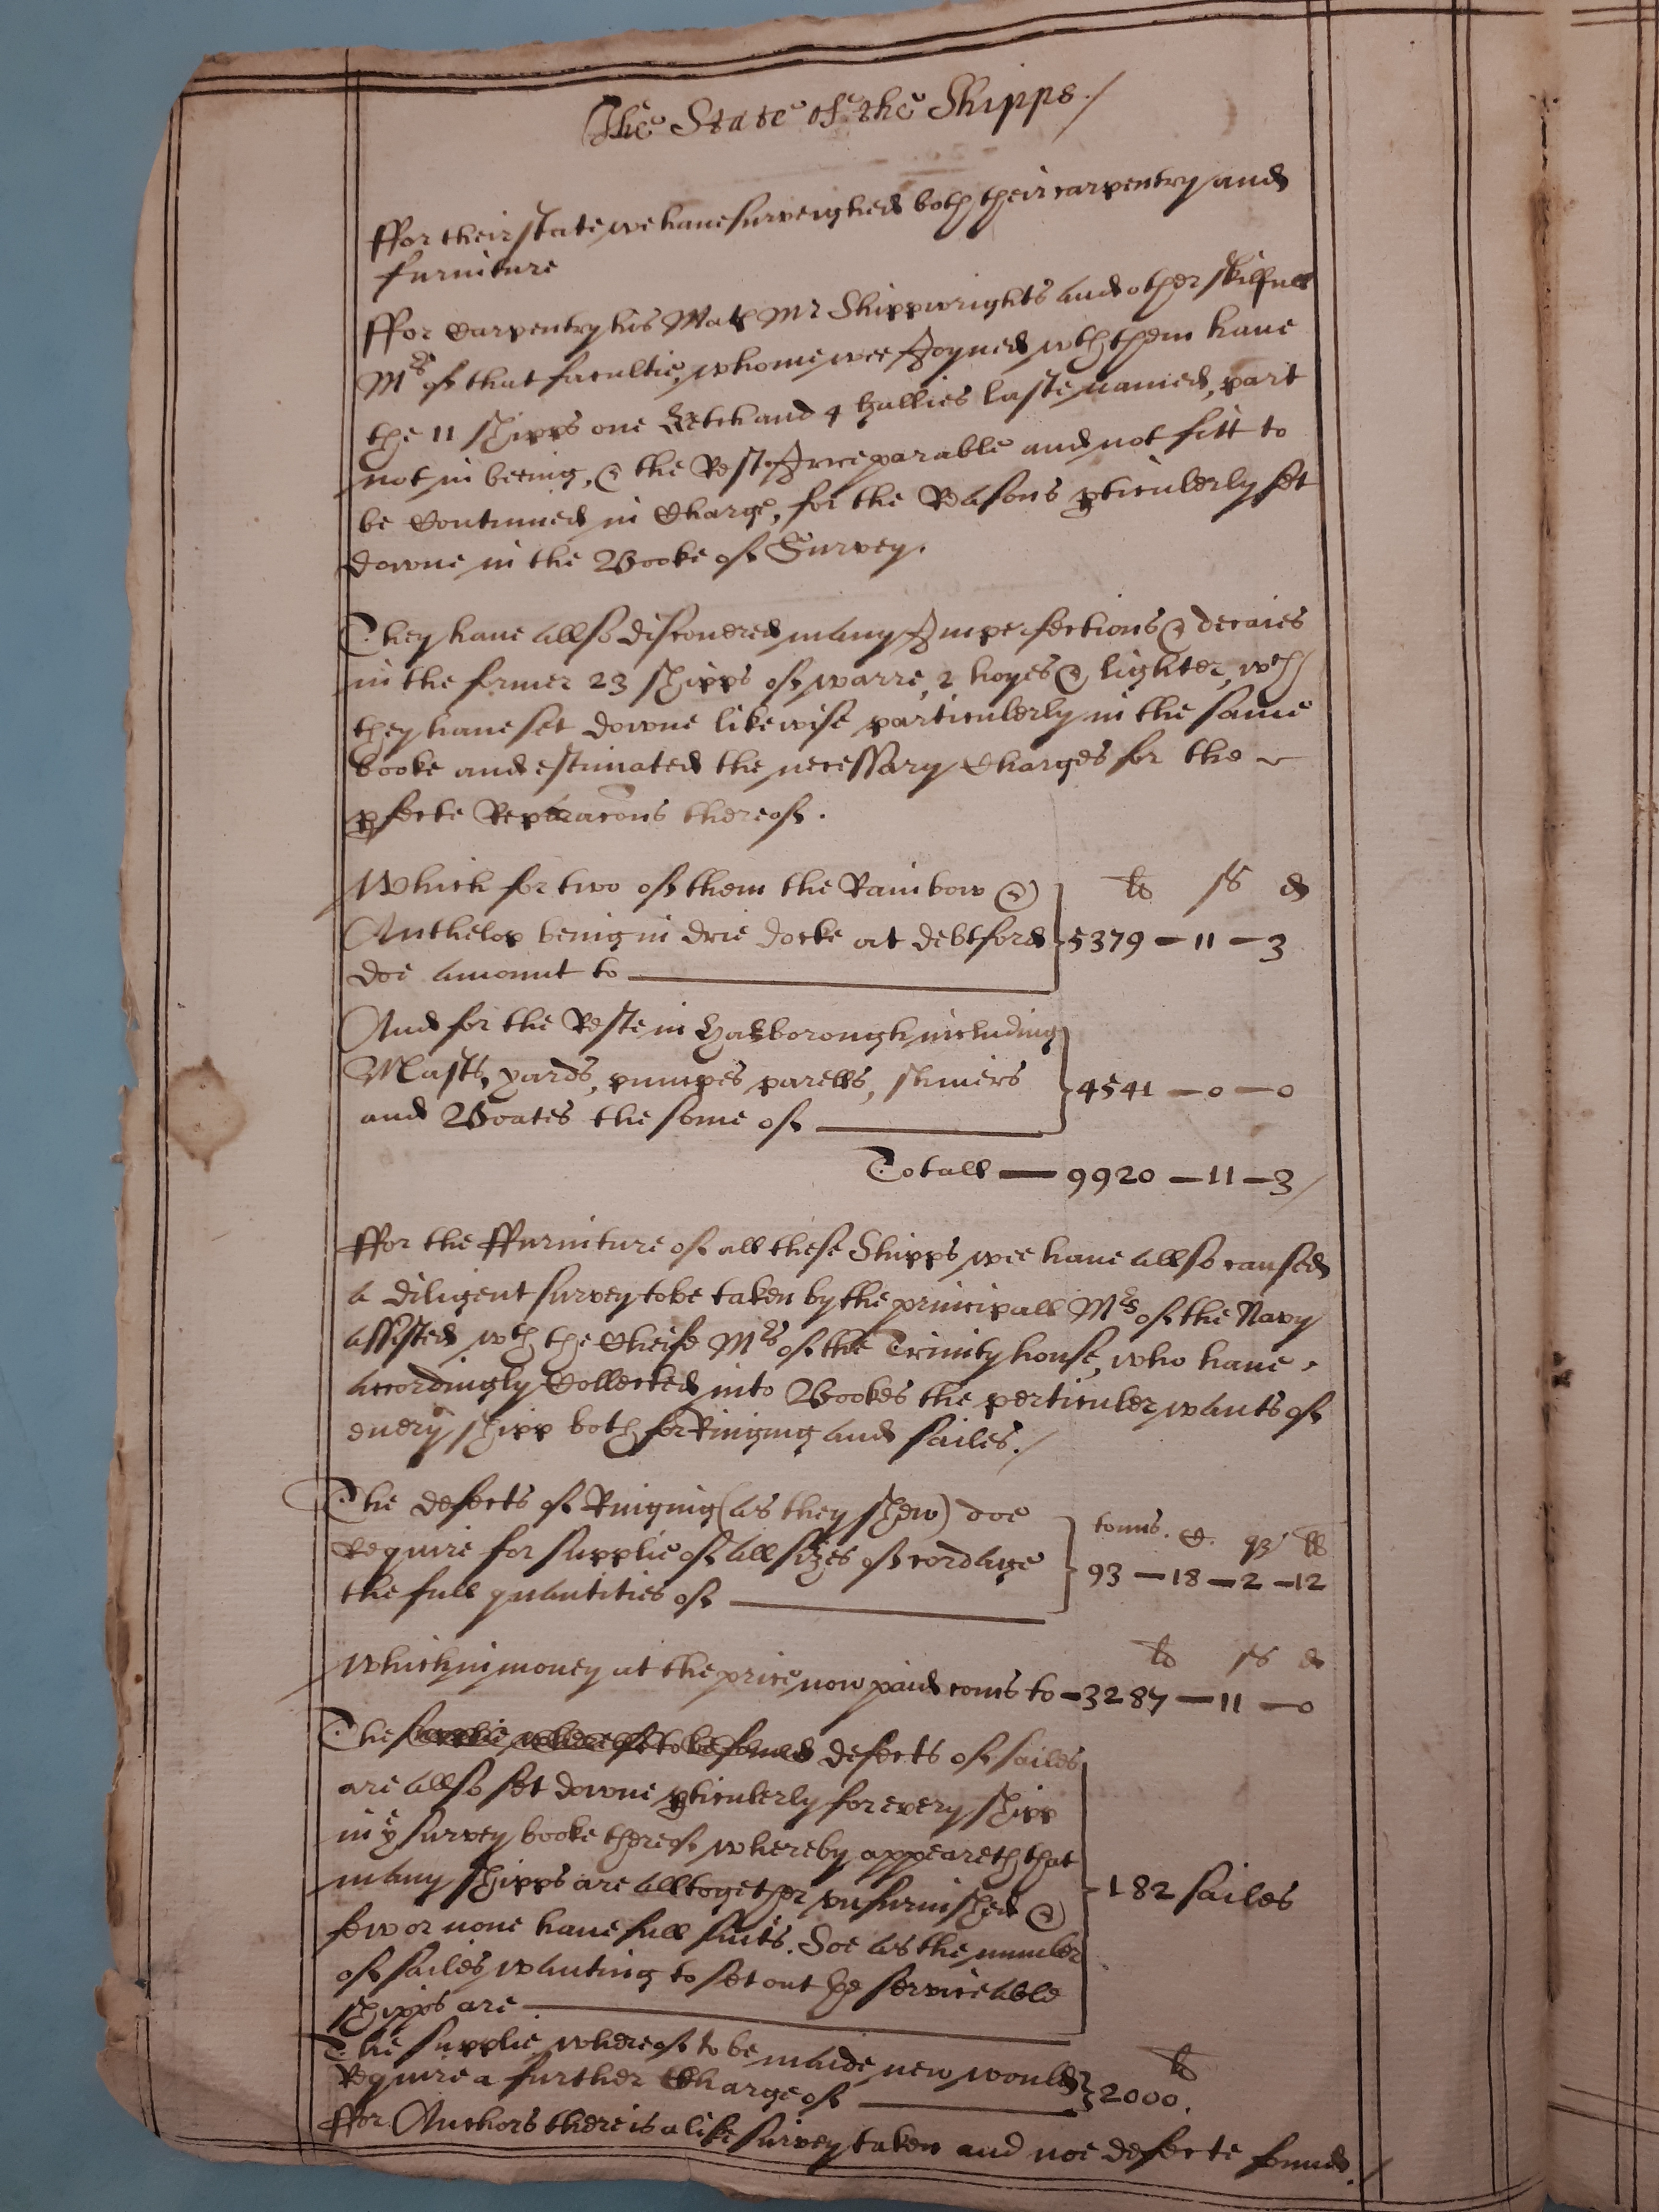 The State of the Shipps./
ffor their state we haue surveighed both their carpentry and
furniture
ffor Carpentry his Matꝭ Mr Shippwrights and other skilfull
Mrs of that facultie, whome wee Joyned wth them haue
the 11 shipps one Ketch and 4 Gallies laste named, part
not in beeing, & the Rest Irreparable and not fitt to
be Continued in Charge, for the Reasons ꝑticulerly set
downe in the Booke of Survey.
They haue allso discouered many Imperfections & decaies
in the former 23 shipps of warre, 2 hoyes & lighter, wch
they haue set downe likewise particulerly in the same
booke and estimated the necessary Charges for the
ꝑfecte Reparacons thereof.
Which for two of them the Rainbow &
Anthelop beinig in drie docke at debtford
doe amount to
li s d
5379 - 11 - 3
And for the Reste in Harborough including
Masts, yards, pumpes, parells, skiners
and Boates the some of
4541 - 0 - 0
Totall - 9920 - 11 - 3/
ffor the ffurniture of all these Shipps wee haue allso caused
a diligent survey to be taken by the principall Mrs of the Navy
assisted wth the Cheife Mrs of the Trinity house, who haue
accordingly Collected into Bookes the perticuler wants of
euery shipp both for Riniging and sailes./
The defects of Riniging (as they shew) doe
Require for supplie of all sizes of cordage
the full quantities of
tonns. C. qz ll
93 - 18 - 2 - 12
Which in money at the price now paid coms to - 3287 - 11 - 0
li s d
The supplie whereof to be found defects of sailes
are allso set downe ꝑticulerly for every shipp
in ye survey booke thereof whereby appeareth that
many shipps are alltogether vnfurnished &
few or none haue full suits. Soe as the number
of sailes wanting to set out the serviceable
shipps are
182 sailes
The supplie whereof to be maide new would
Require a further Charge of
li
2000.
ffor Anchors there is a like survey taken and noe defecte found./